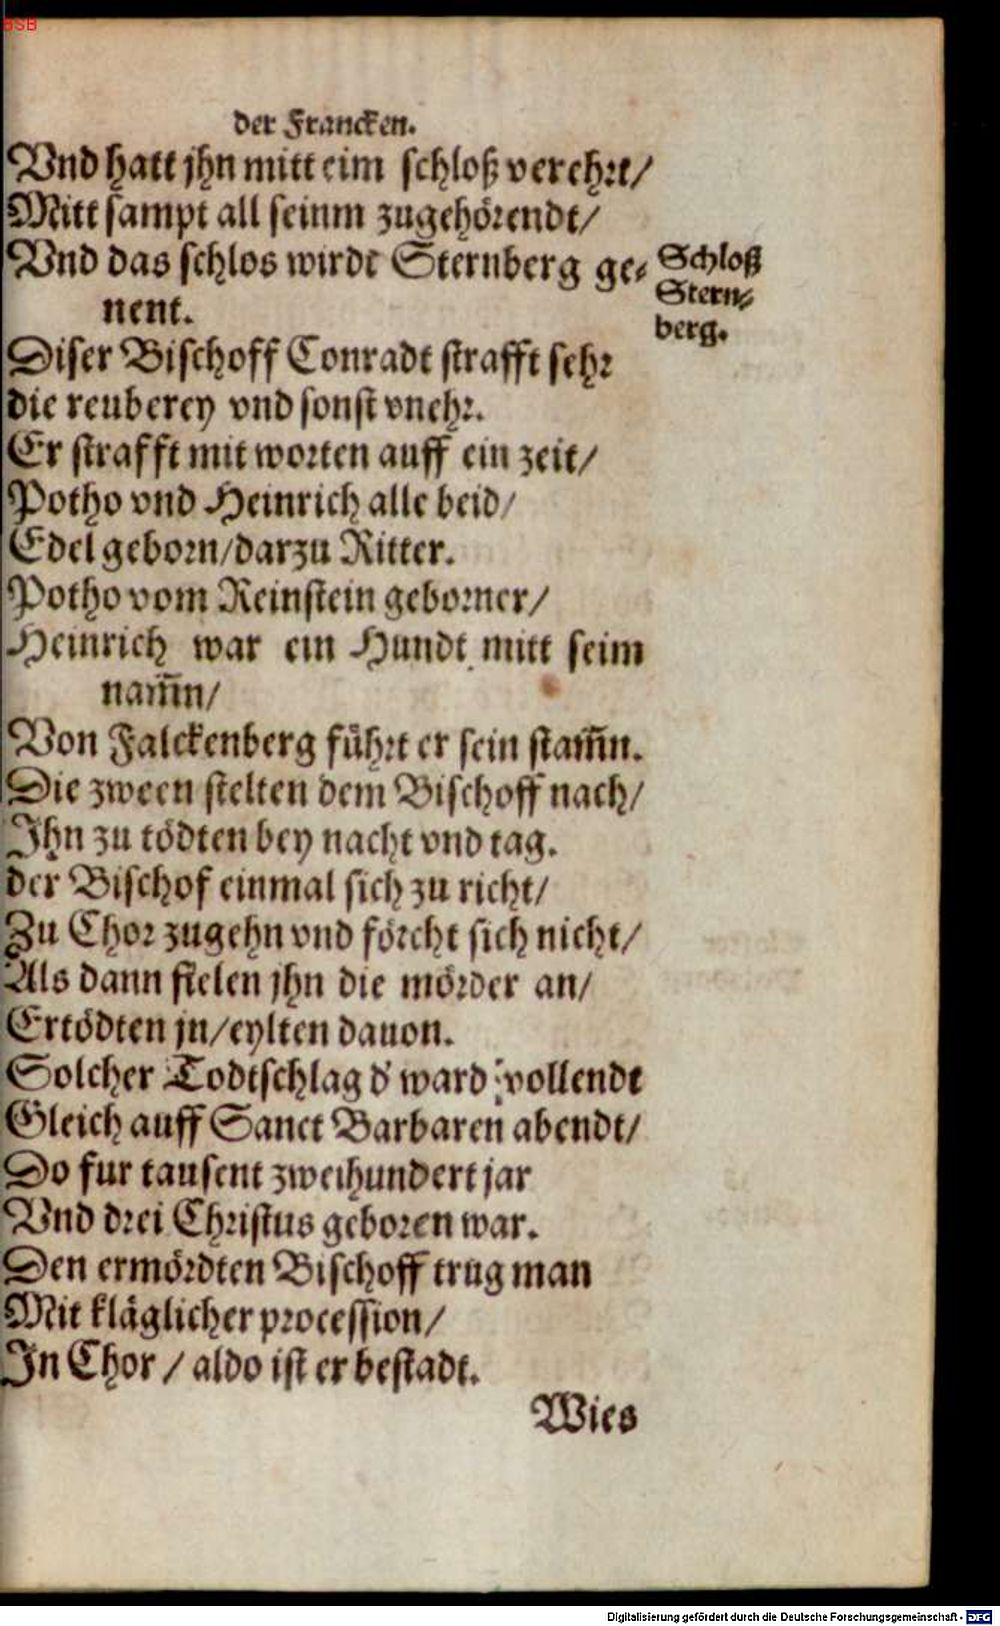 BSB
der Francken.
Vnd hatt jhn mitt eim schloß verehrt/
Mitt sampt all seinm zugehörendt/
Vnd das schlos wirdt Sternberg ge⸗
nent.
Schloß
Stern⸗
berg.
Diser Bischoff Conradt strafft sehr
die reuberey vnd sonst vnehr.
Er strafft mit worten auff ein zeit/
Potho vnd Heinrich alle beid/
Edel geborn/darzu Ritter.
Potho vom Reinstein geborner/
Heinrich war ein Hundt mitt seim
nam̄n/
Von Falckenberg führt er sein stam̄n.
Die zween stelten dem Bischoff nach/
Ihn zu tödten bey nacht vnd tag.
der Bischof einmal sich zu richt/
Zu Chor zugehn vnd förcht sich nicht/
Als dann fielen jhn die mörder an/
Ertödten jn/eylten dauon.
Solcher Todtschlag d' ward vollendt
Gleich auff Sanct Barbaren abendt/
Do fur tausent zweihundert jar
Vnd drei Christus geboren war.
Den ermördten Bischoff trug man
Mit kläglicher procession/
In Chor / aldo ist er bestadt.
Wies
Digitalisierung gefördert durch die Deutsche Forschungsgemeinschaft - DFG